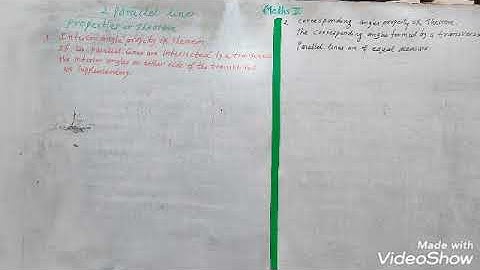 2 parallel lines
Maths II
Properties or theorem
1. Interior angle property or theorem
If two parallel lines are intersected by a transversal
the interior angles on either side of the transversal
are supplementary.
2. corresponding angles property or theorem.
The corresponding angles formed by a transversal
Parallel lines are of equal measure
Made with
VideoShow